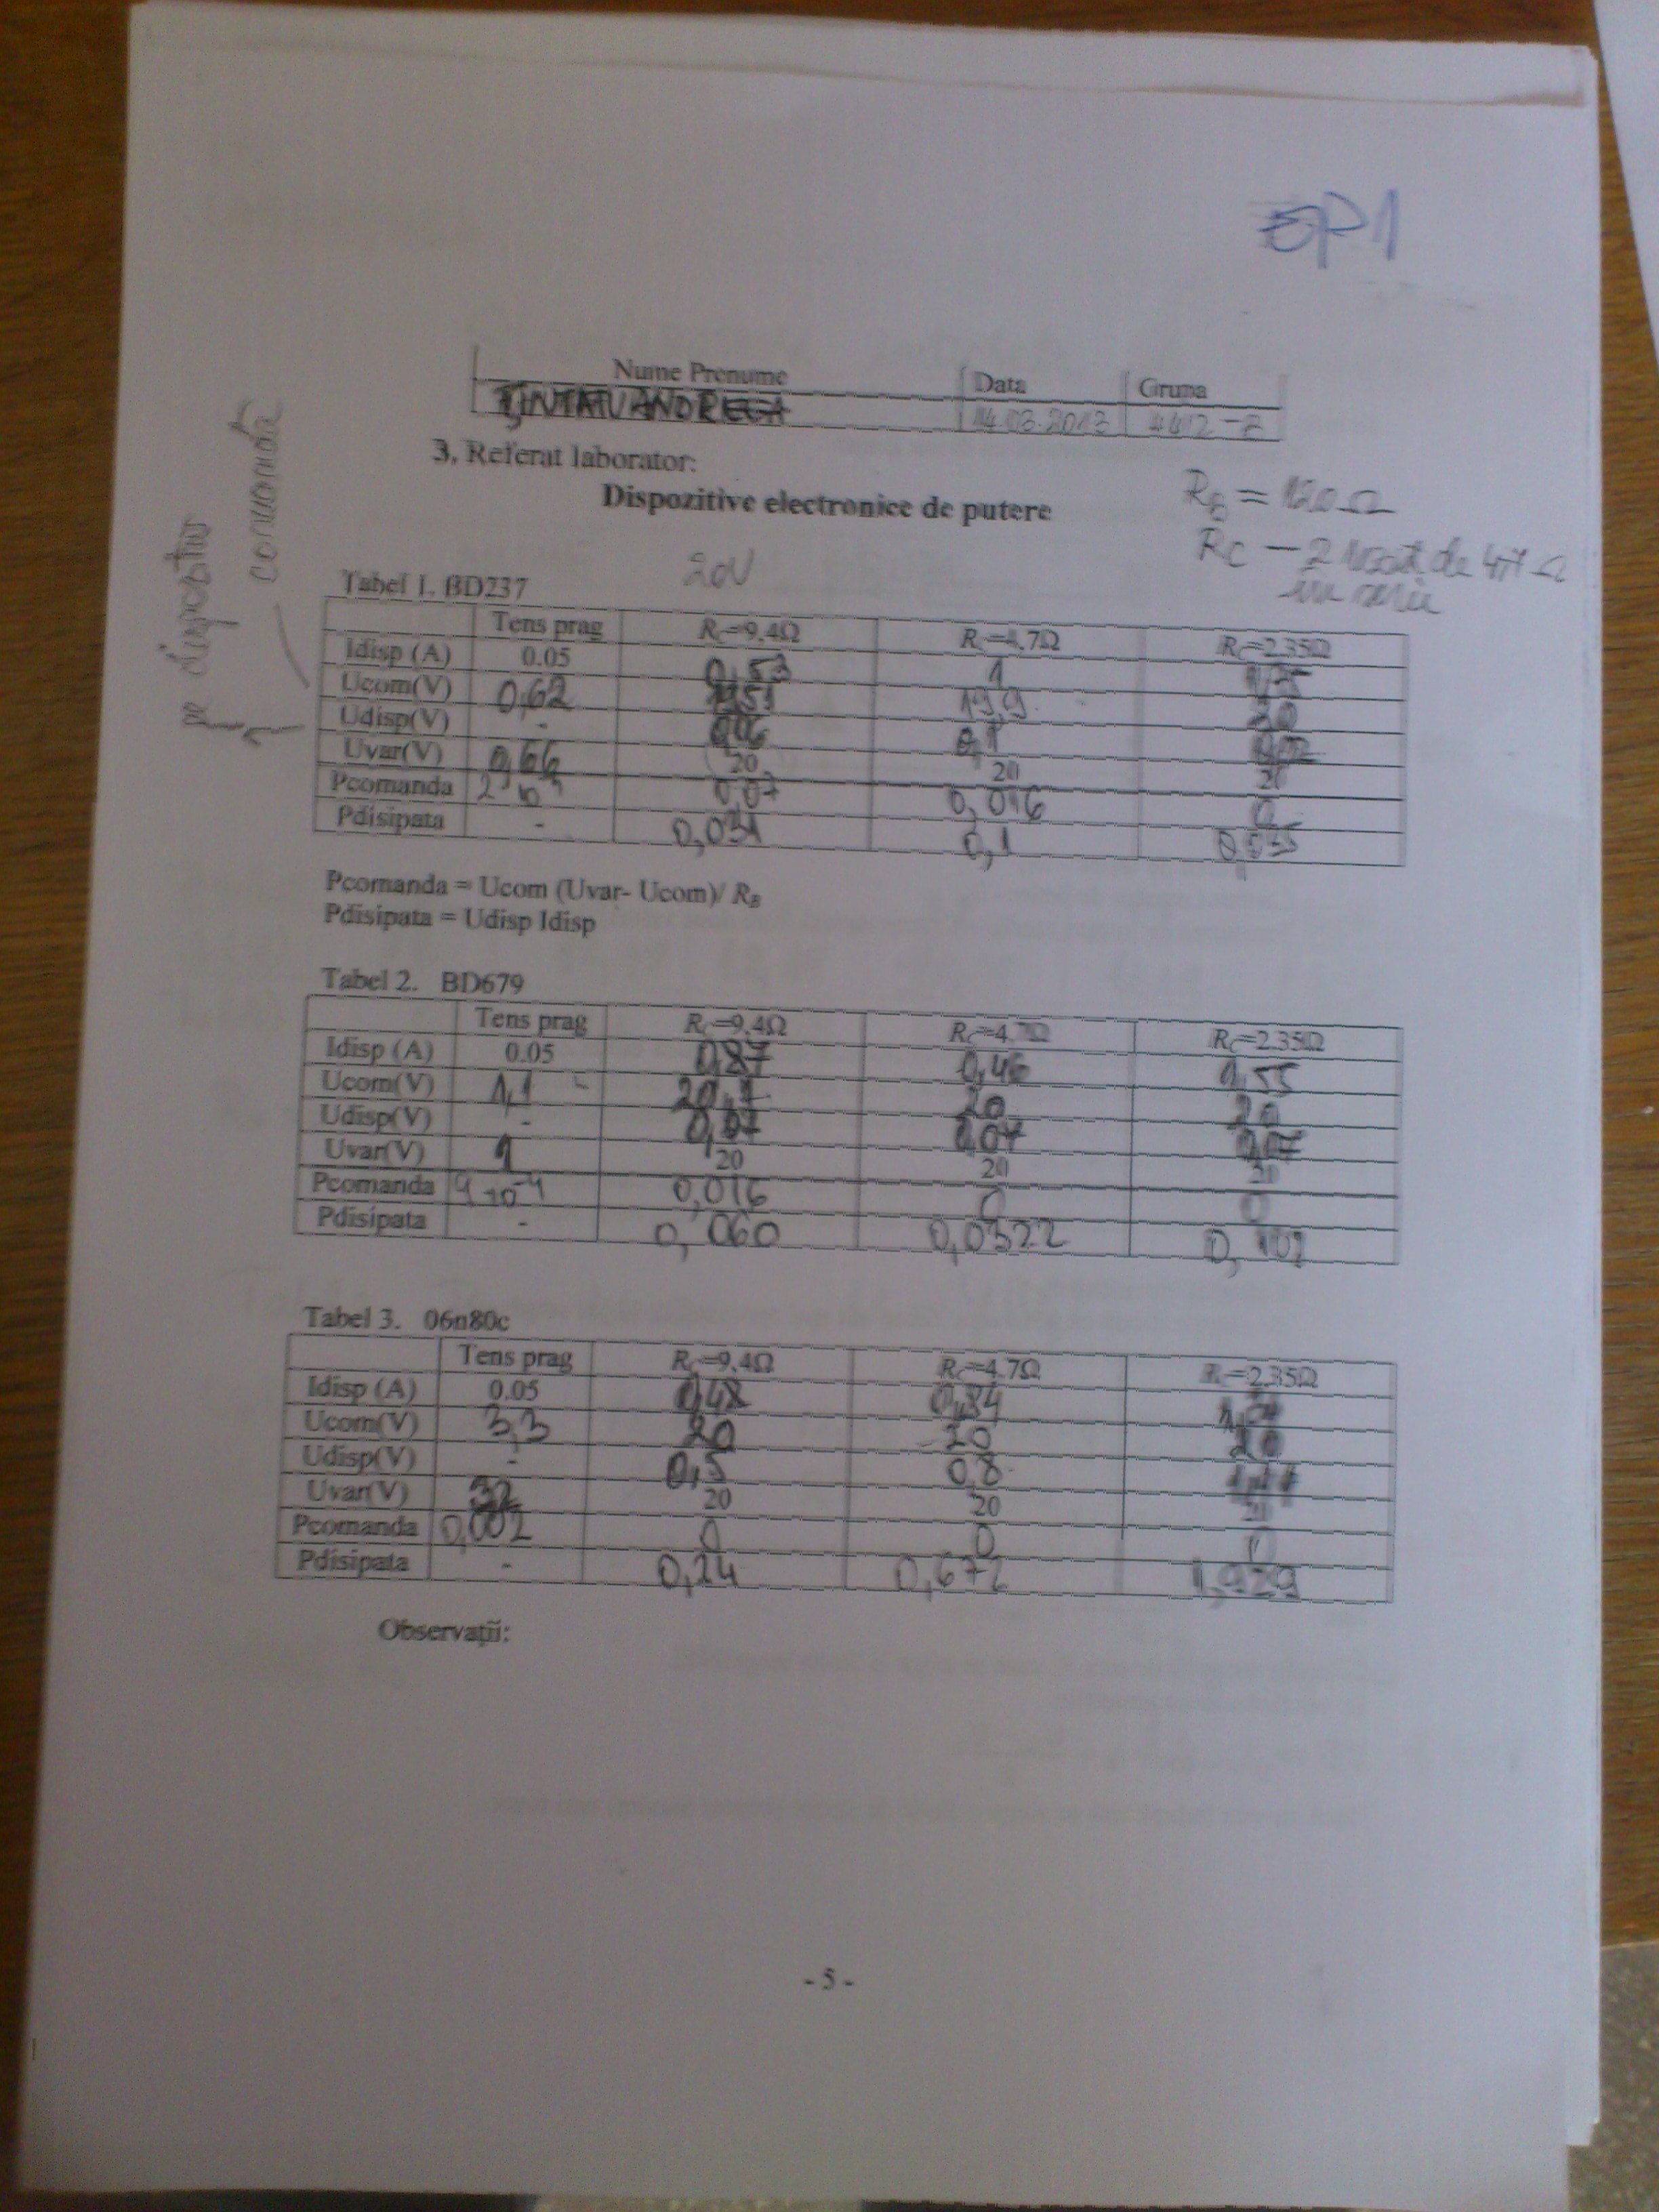 Nume Prenume Data Grupa
14.03.2013
3. Referat laborator:
Dispozitive electronice de putere
pe dispozitiv
comandă
20V
în serie
Tabel 1. BD237
Tens prag RC=9.4Ω RC=4.7Ω RC=2.35Ω
Idisp (A) 0.05 0,53 1
Ucom(V) 0,62 19,9
Udisp(V) -
Uvar(V) 0,66 20 20 20
Pcomanda 0,07 0,016 0
Pdisipata - 0,031 0,1 0,035
Pcomanda = Ucom (Uvar- Ucom)/ RB
Pdisipata = Udisp Idisp
Tabel 2. BD679
Tens prag RC=9.4Ω RC=4.7Ω RC=2.35Ω
Idisp (A) 0.05 0,87 0,46 1,55
Ucom(V) 1,1 20,1 20 20
Udisp(V) - 0,07 0,07 0,07
Uvar(V) 1 20 20 20
Pcomanda 9 10^-4 0,016 0 0
Pdisipata - 0,060 0,0322 0,107
Tabel 3. 06n80c
Tens prag RC=9.4Ω RC=4.7Ω RC=2.35Ω
Idisp (A) 0.05 0,48 0,84
Ucom(V) 3,3 20 20 20
Udisp(V) - 0,5 0,8
Uvar(V) 20 20 20
Pcomanda 0,002 0 0 0
Pdisipata - 0,24 0,672 1,929
Observații:
- 5 -